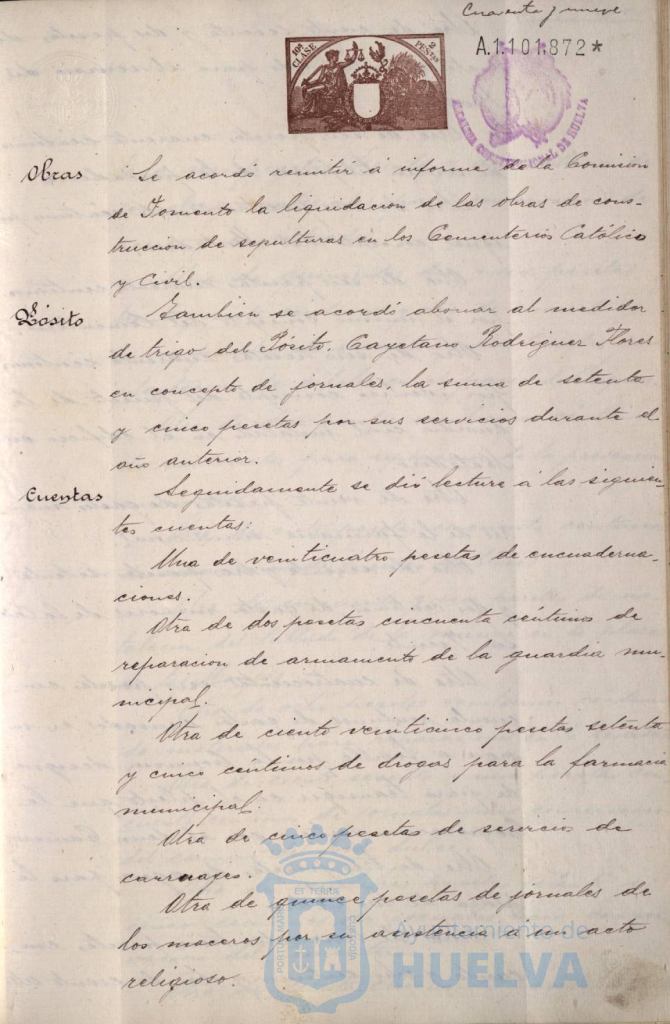 Cuarenta y nueve
10ª CLASE
2 PESETAS
A.1.101.872*
ALCALDIA CONSTITUCIONAL DE HUELVA
Obras
Se acordó remitir á informe de la Comisión
de Fomento la liquidacion de las obras de cons-
truccion de sepulturas en los Cementerios Católico
y Civil.
Pósito
Tambien se acordó abonar al medidor
de trigo del Pósito, Cayetano Rodriguez Flores
en concepto de jornales, la suma de setenta
y cinco pesetas por sus servicios durante el
año anterior.
Cuentas
Seguidamente se dió lectura á las siguien-
tes cuentas:
Una de veinticuatro pesetas de encuaderna-
ciones.
Otra de dos pesetas cincuenta céntimos de
reparacion de armamento de la guardia mu-
nicipal.
Otra de ciento veinticinco pesetas setenta
y cinco céntimos de drogas para la farmacia
municipal.
Otra de cinco pesetas de servicio de
carruajes.
Otra de quince pesetas de jornales de
los maceros por su asistencia á un acto
religioso.
PORTUS MARIS ET TERRAE CUSTODIA
Ayuntamiento de
HUELVA